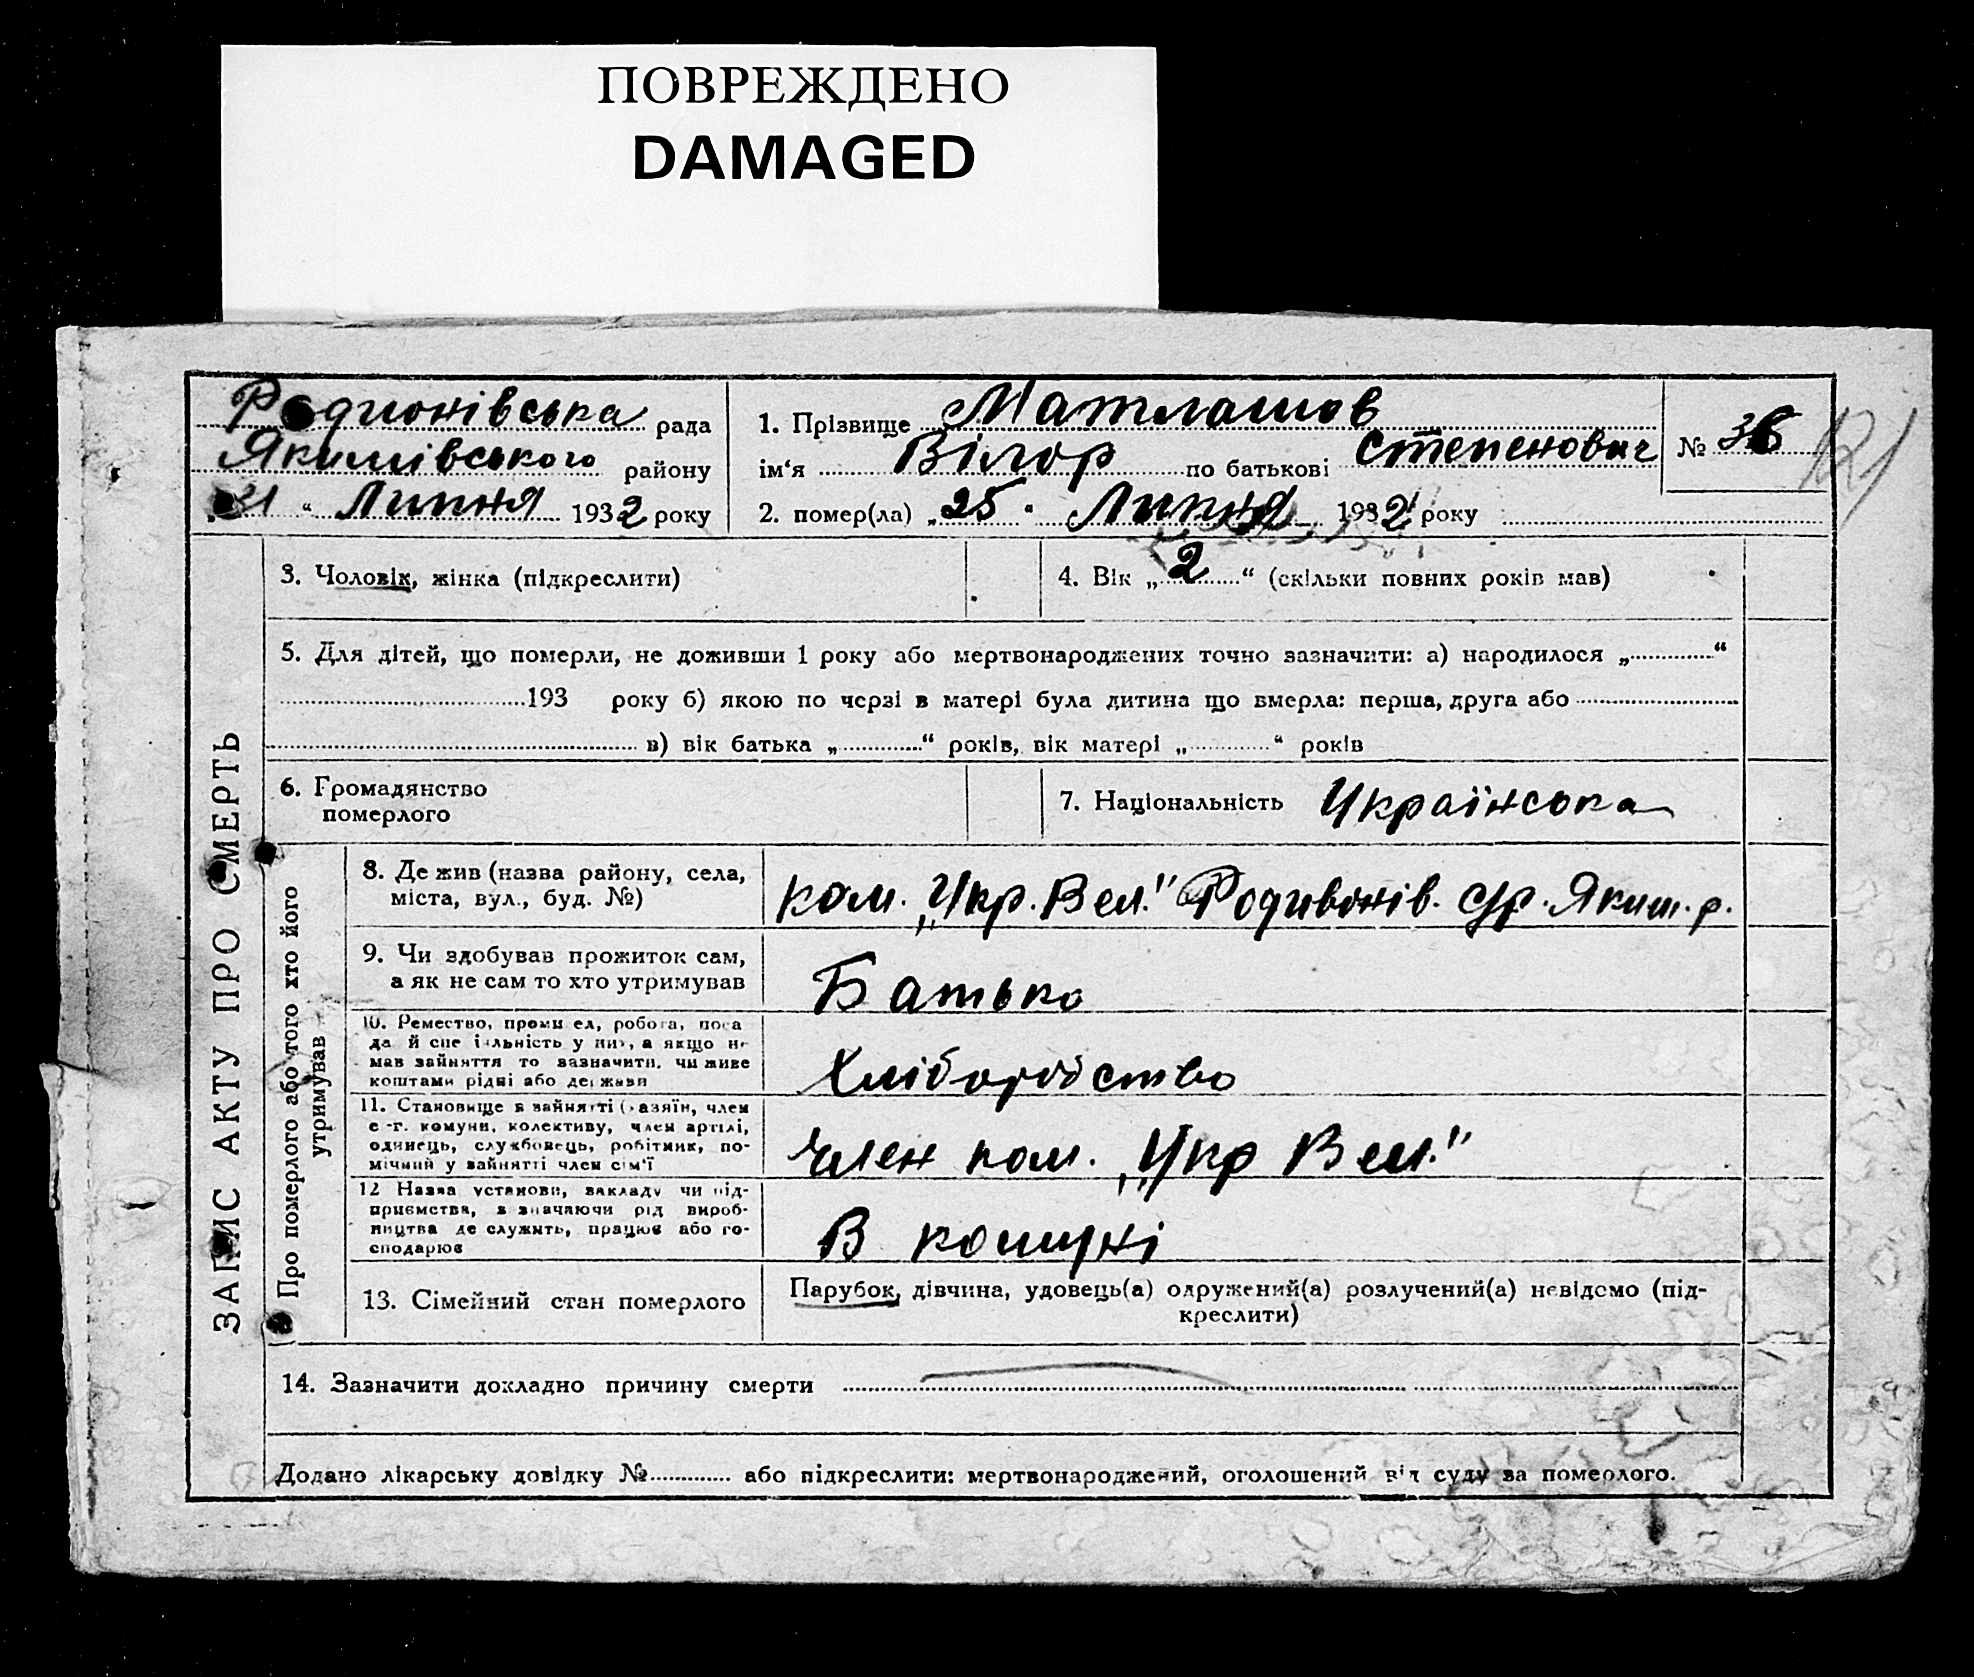 ПОВРЕЖДЕНО
DAMAGED
Родионівська рада
Якимівського району
31 " Липня 1932 року
1. Прізвище Матлашов
ім'я Вілор по батькові Степенович
№ 36
121
2. помер(ла) „25" Липня 1932 року
ЗАПИС АКТУ ПРО СМЕРТЬ
3. Чоловік, жінка (підкреслити)
4. Вік „2" (скільки повних років мав)
5. Для дітей, що померли, не доживши 1 року або мертвонароджених точно зазначити: а) народилося „ "
193 року б) якою по черзі в матері була дитина що вмерла: перша, друга або
в) вік батька „ " років, вік матері „ " років
6. Громадянство
померлого
7. Національність Українська
Про померлого або того хто його
утримував
8. Де жив (назва району, села,
міста, вул., буд. №)
ком. „Укр. Вел." Родивонів. с/р. Яким. р.
9. Чи здобував прожиток сам,
а як не сам то хто утримував
Батько
10. Ремество, промисел, робота, поса
да й спеціальність у них, а якщо не
мав зайняття то зазначити, чи живе
коштами рідні або держави
Хліборобство
11. Становище в зайнятті (хазяїн, член
с.-г. комуни, колективу, член артілі,
одинець, службовець, робітник, по-
мічний у зайнятті член сім'ї
Член ком. „Укр Вел."
12 Назва установи, закладу чи під-
приємства, зазначаючи рід вироб-
ництва де служить, працює або го-
сподарює
В комуні
13. Сімейний стан померлого
Парубок, дівчина, удовець(а) одружений(а) розлучений(а) невідомо (під-
креслити)
14. Зазначити докладно причину смерти
Додано лікарську довідку № або підкреслити: мертвонароджений, оголошений від суду за померлого.